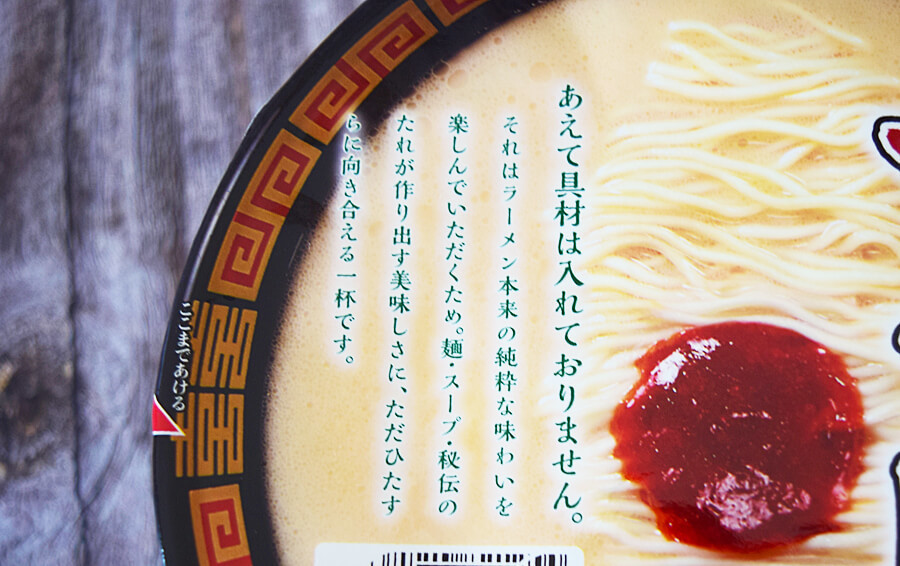 あえて具材は入れておりません。
それはラーメン本来の純粋な味わいを
楽しんでいただくため。麺・スープ・秘伝の
たれが作り出す美味しさに、ただひたす
らに向き合える一杯です。
ここまであける